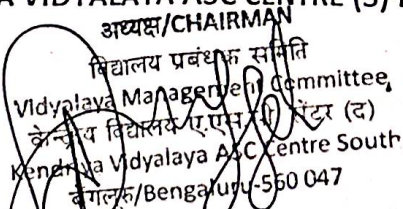 VIDYALAYA ASC CENTRE (S)
अध्यक्ष/CHAIRMAN
विद्यालय प्रबंधक समिति
Vidyalaya Management Committee,
केन्द्रीय विद्यालय ए.एस.सी सेंटर (द)
Kendriya Vidyalaya ASC Centre South
बेंगलूरु/Bengaluru-560 047